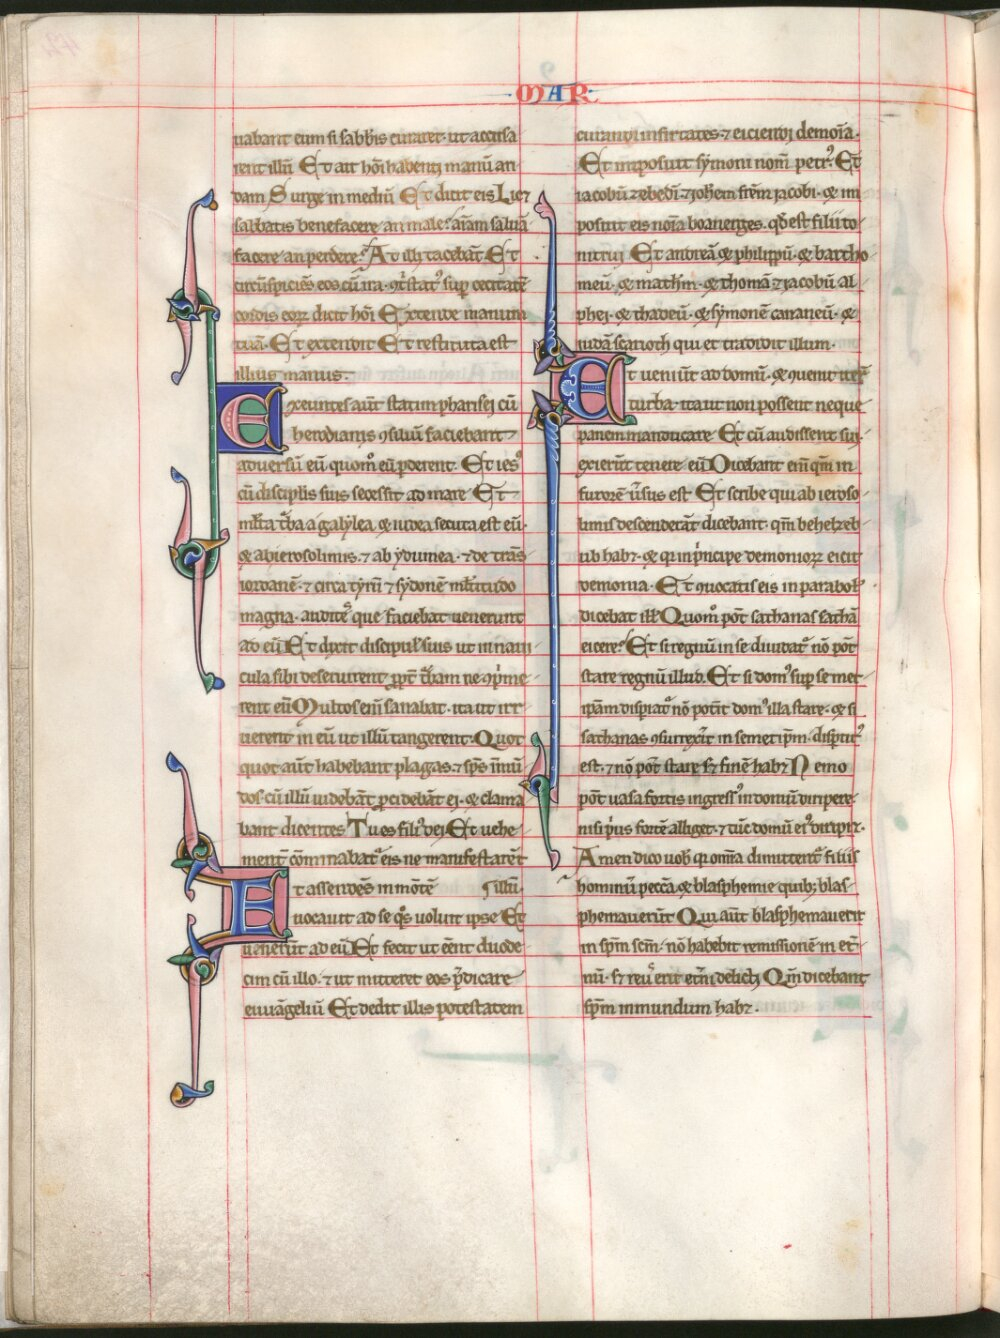 MAR
uabant eum si sabb̄is curaret· ut accusa
rent illū Et ait hōi habenti manū ari
dam Surge in mediū Et dicit eis Licꝫ
sabbatis benefacere an male· aīam saluā
facere· an perdere? At illi tacebāt Et
circūspiciēs eos cū ira· ꝯtstatꝰ sup̄ cecitatē
cordis eoꝝ dicit hōi Extende manum
tuā· Et extendit Et restituta est
illius manus·
Exeuntes aūt statim pharisei cū
herodianis ꝯsiliū faciebant
aduersū eū quom̊ eū ꝑderent· Et iesꝰ
cū disciplis suis secessit ad mare Et
ml̄ta t̄ba a galylea ⁊ iudea secuta est eū·
⁊ ab ierosolimis· ⁊ ab ydumea· ⁊ de trās
iordanē· ⁊ circa tyrū ⁊ sydonē ml̄titudo
magna· auditēˢ que faciebat uenerunt
ad eū Et dixit discipul̓ suis ut in nauı
cula sibi deseruirent ꝓpt̓ t̄bam ne ꝯp̄me
rent eū Multos eni sanabat· ita ut irr
uerent in eū ut illū tangerent· Quot
quot aūt habebant plagas· ⁊ sp̄s īmū
dos· cū illū uidebāt ꝓcidebāt ei· ⁊ clama
bant dicentes Tu es filiꝰ dei Et uehe
ment̓ cōminabatˀ eis ne manifestarēt
Et ascendēs in mōtē illū·
uocauit ad se q̊s uoluit ipse Et
uenerūt ad eū Et fecit ut eēnt duode
cim cū illo· ⁊ ut mitteret eos p̄dicare
euuāgeliū Et dedit illis potestatem
curandi infirtates· ⁊ eiciendi demoīa·
Et imposuit symoni nom̄ petrꝰ· Et
iacobū zebedi· ⁊ ioh̄em fr̄em iacobi· ⁊ im
posuit eis noīa boanerges· qd̄ est filii to
nitrui Et andreā ⁊ philippū· ⁊ bartho
meū· ⁊ math̄m· ⁊ thomā ⁊ iacobū al
phei· ⁊ thadeū· ⁊ symonē cananeū· ⁊
iudā scarioth qui et tradidit illum·
Et ueniūt ad domū· ⁊ ꝯuenit itꝝ
turba· ita ut non possent neque
panem manducare Et cū audissent sui
exierūt tenere eū Dicebant eni qm̄ in
furorē ūsus est Et scribe qui ab ieroso
limis descenderāt dicebant· qm̄ behelzeb
ub habꝫ· ⁊ qꝛ in p̓ncipe demonioꝝ eicit
demonia· Et ꝯuocatis eis in parabol̓
dicebat ill̓ Quom̊ pōt sathanas sathā
eicere? Et si regnū in se diuidatˀ nō pōt
stare regnū illud· Et si domꝰ sup̄ se met
ip̄am disp̄iatˀ nō potit̓ domꝰ illa stare· ⁊ si
sathanas ꝯsurrexit̓ in semetip̄m· disp̄titꝰ
est· ⁊ nō pōt stare sꝫ finē habꝫ Nemo
pōt uasa fortis ingressꝰ in domū diripere
nisi p̓us fortē alliget· ⁊ tūc domū eiꝰ diripiꝫ·
Amen dico uob̓ qꝛ omīa dimittentˀ filiis
hominū peccā ⁊ blasphemie quibꝫ blas
phemauerūt Qui aūt blasphemauerit
in sp̄m scm̄· nō habebit remissionē in et̓
nū· sꝫ reuˢ erit et̓ni delicti Qm̄ dicebant
sp̄m inmundum habꝫ·